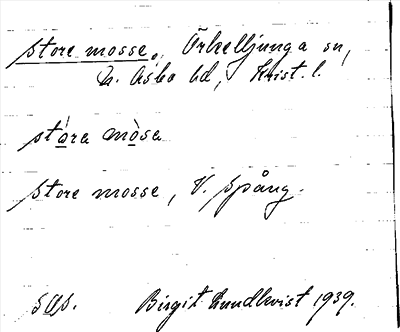 Store mosse, Örkelljunga sn,
N. Åsbo hd, Krist. l.
stóra mòsa
Store mosse, V. Spång.
Birgit Lundkvist 1939.